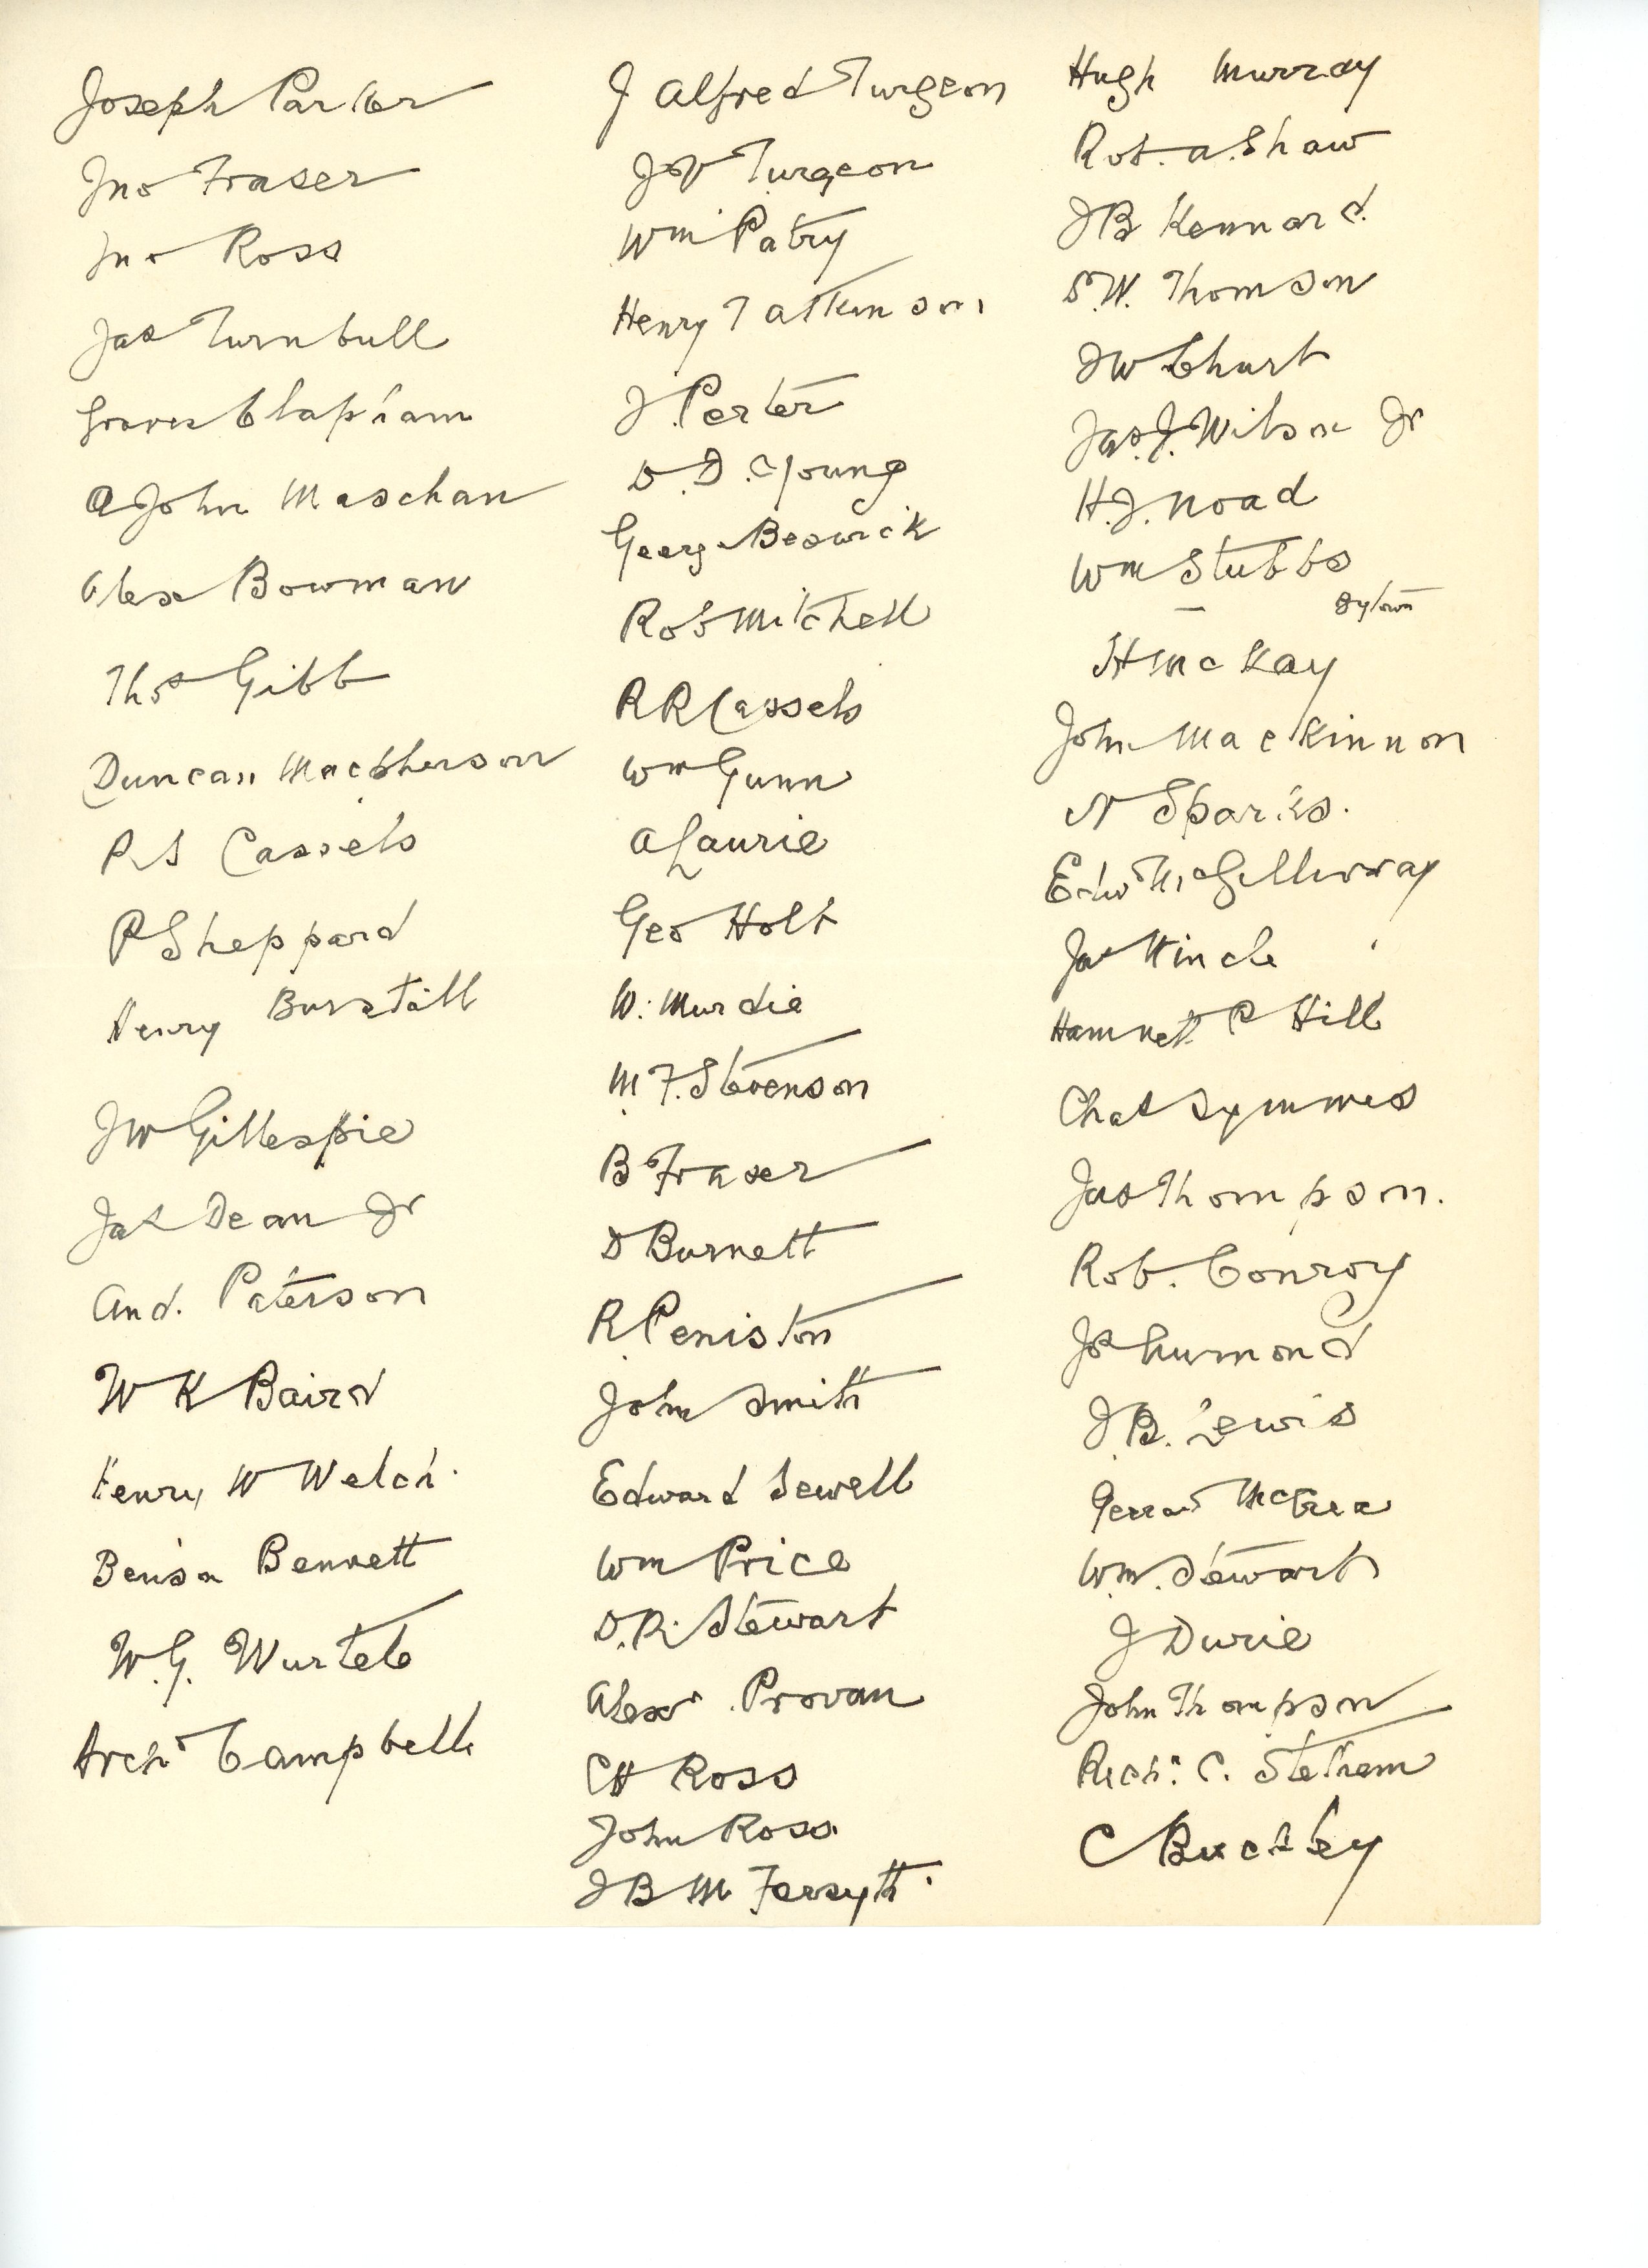 Joseph Parker
Jno Fraser
Jno Ross
Jas Turnbull
Graves Clapham
A John Maxham
Alex Bowman
Thos Gibb
Duncan Macpherson
R S Cassels
P Sheppard
Henry Burstall
J W Gillespie
Jas Dean Jr
And. Paterson
W K Baird
Henry W Welch.
Benson Bennett
W. G. Wurtele
Archd Campbell
J Alfred Turgeon
J V Turgeon
Wm Patry
Henry Atkinson
J. Porter
D. D. Young
George Beswick
Rob Mitchell
R R Cassels
Wm Gunn
A Laurie
Geo Holt
W. Murdie
M F. Stevenson
B Fraser
D Burnett
R Peniston
John Smith
Edward Sewell
Wm Price
D. R. Stewart
Alexr. Provan
C H Ross
John Ross
J B M Forsyth.
Hugh Murray
Rob. A. Shaw
J B Kennard.
S. W. Thomson
J W
Jas. J. Wilson Jr
H. J. Noad
Wm Stubbs
Bytown
H McKay
John MacKinnon
N Sparks.
Edwd McGillivray
Jas Hinch
Hamnett P Hill
Chas Symmes
Jas Thompson.
Rob. Conroy
J B. Lewis
McCrea
Wm. Stewart
J Durie
John Thompson
Richd: C. Stetham
C Buckley